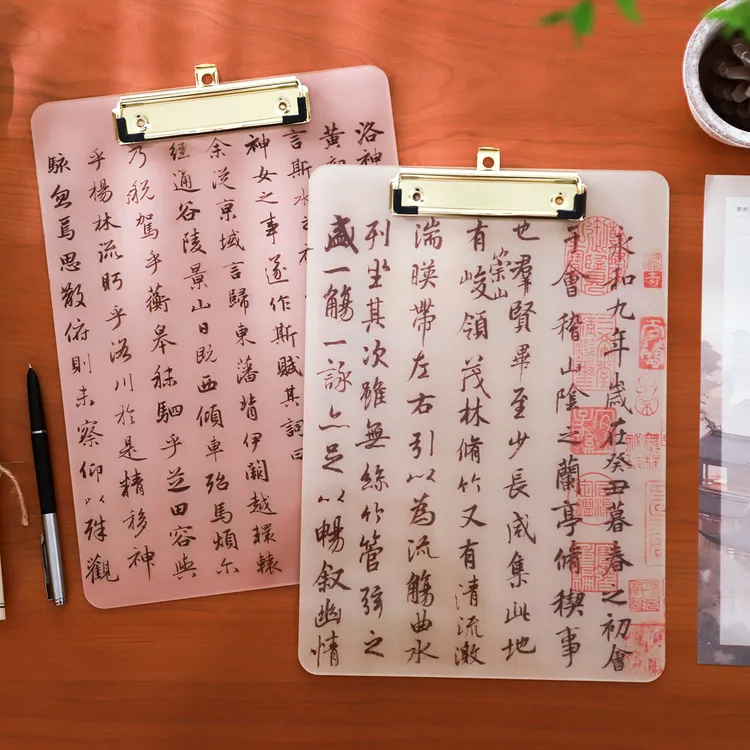 永和九年歲在癸丑暮春之初會
于會稽山陰之蘭亭脩稧事
也羣賢畢至少長咸集此地
有崇山峻領茂林脩竹又有清流激
湍暎帶左右引以為流觴曲水
列坐其次雖無絲竹管弦之
盛一觴一詠亦足以暢叙幽情
洛神
黃
言斯水之
神女之事遂作斯賦其詞曰
余從京域言歸東藩背伊闕越轘轅
經通谷陵景山日既西傾車殆馬煩尔
乃稅駕乎蘅皋秣駟乎芝田容與
乎楊林流眄乎洛川於是精移神
駭忽焉思散俯則未察仰以殊觀